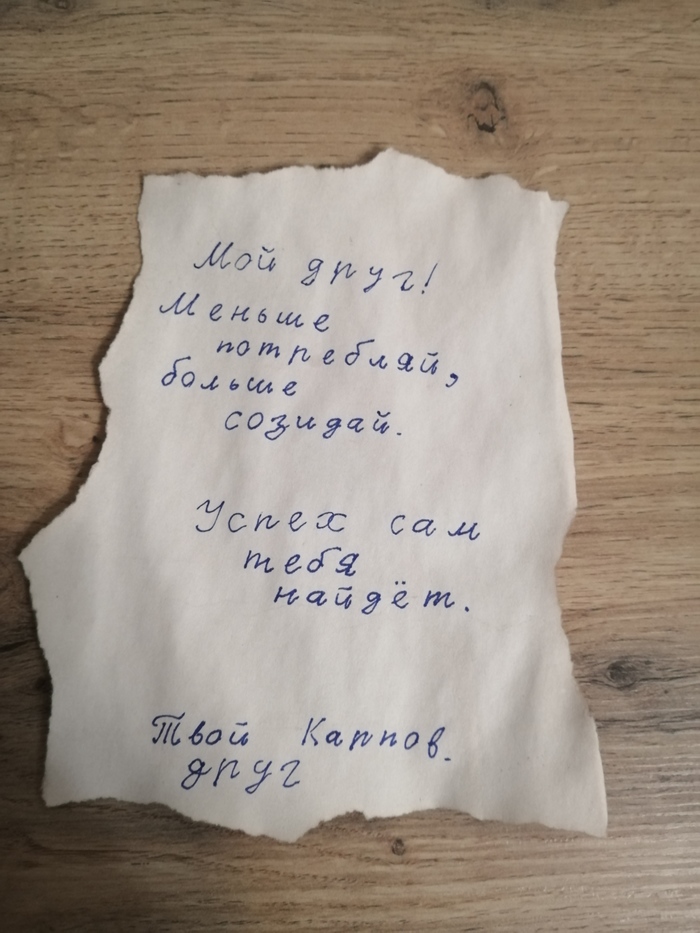 Мой друг!
Меньше
потребляй,
больше
созидай.
Успех сам
тебя
найдёт.
Твой Карпов.
друг